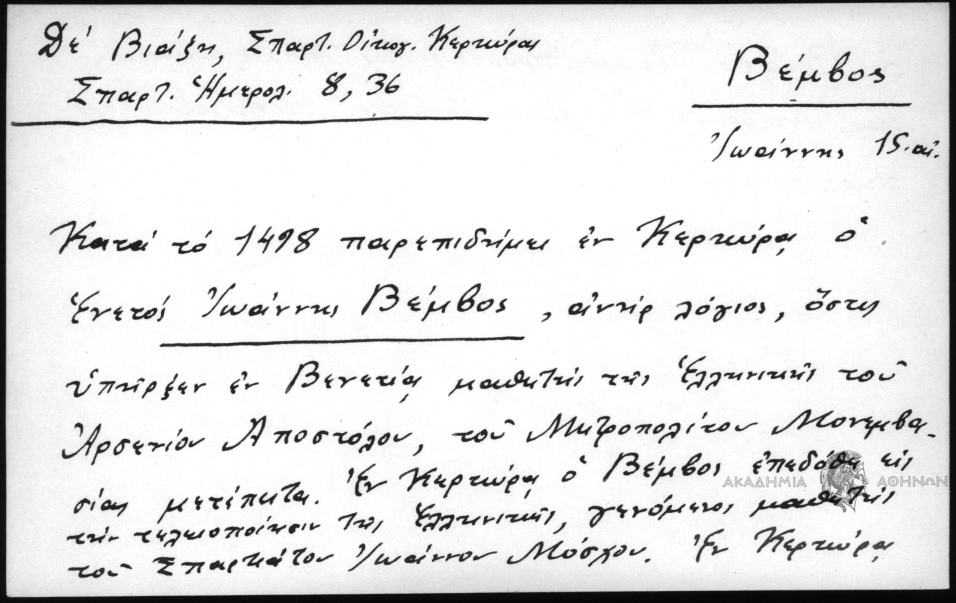 Δέ Βιάζη, Σπαρτ. Οἰκογ. Κερκύρας
Σπαρτ. Ἡμερολ. 8, 36
Βέμβος
Ἰωάννης 15. αἰ.
Κατά τό 1498 παρεπιδήμει ἐν Κερκύρᾳ ὁ
Ἑνετός Ἰωάννης Βέμβος, ἀνήρ λόγιος, ὅστις
ὑπῆρξεν ἐν Βενετίᾳ μαθητής τῆς Ἑλληνικῆς τοῦ
Ἀρσενίου Ἀποστόλου, τοῦ Μητροπολίτου Μονεμβα-
σίας μετέπειτα. Ἐν Κερκύρᾳ ὁ Βέμβος ἐπεδόθη εἰς
ΑΚΑΔΗΜΙΑ ΑΘΗΝΩΝ
τήν τελειοποίησιν τῆς Ἑλληνικῆς, γενόμενος μαθητής
τοῦ Σπαρτιάτου Ἰωάννου Μόσχου. Ἐν Κερκύρᾳ